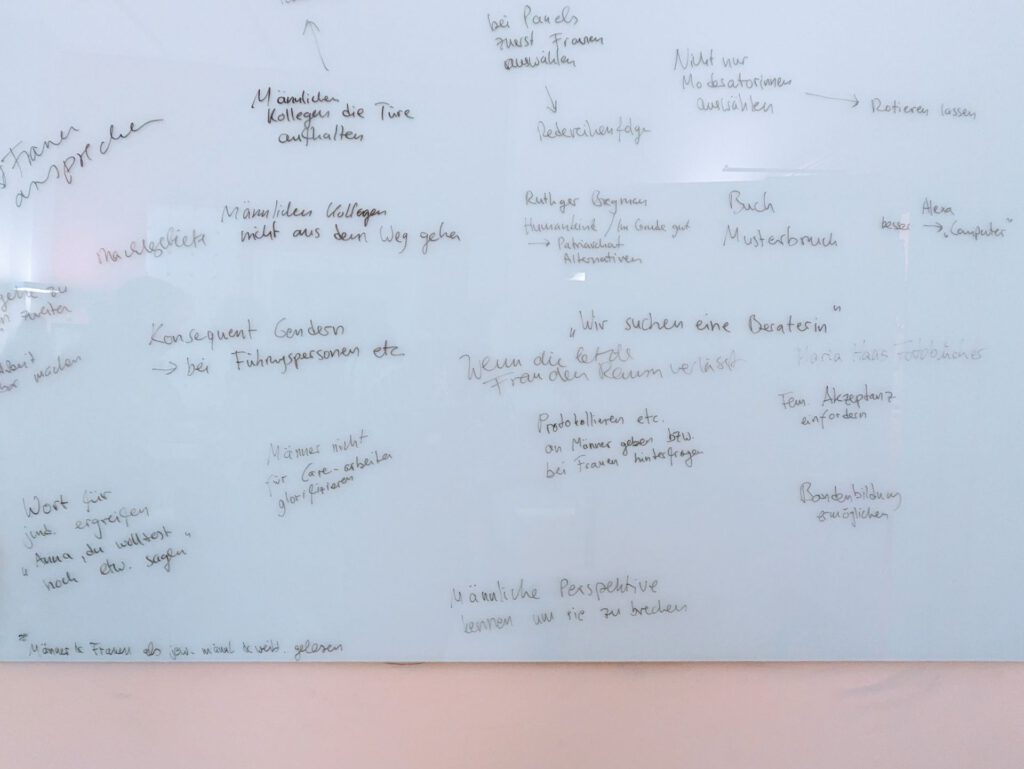 bei Panels
zuerst Frauen
auswählen
→
Redereihenfolge
Nicht nur
Moderatorinnen
auswählen
→ Rotieren lassen
Männlichen
Kollegen die Türe
aufhalten
Frauen
ansprechen
Männlichen Kollegen
nicht aus dem Weg gehen
Ruthger Bregman
Humankind / Im Grunde gut
→ Patriarchat
Alternativen
Buch
Musterbruch
Alexa
besser → „Computer"
zweiten
machen
Konsequent Gendern
→ bei Führungspersonen etc.
„Wir suchen eine Beraterin"
Wenn die letzte
Frau den Raum verlässt
Maria Haas Fotobücher
Fem. Akzeptanz
einfordern
Protokollieren etc.
an Männer geben bzw.
bei Frauen hinterfragen
Männer nicht
für Care-arbeiten
glorifizieren
Bandenbildung
ermöglichen
Wort für
jmd. ergreifen
„Anna, du wolltest
noch etw. sagen"
Männliche Perspektive
kennen um sie zu brechen
Männer & Frauen als jew. männl. & weibl. gelesen